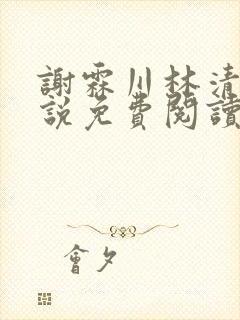 謝霖川林清
說免費閱讀
會夕